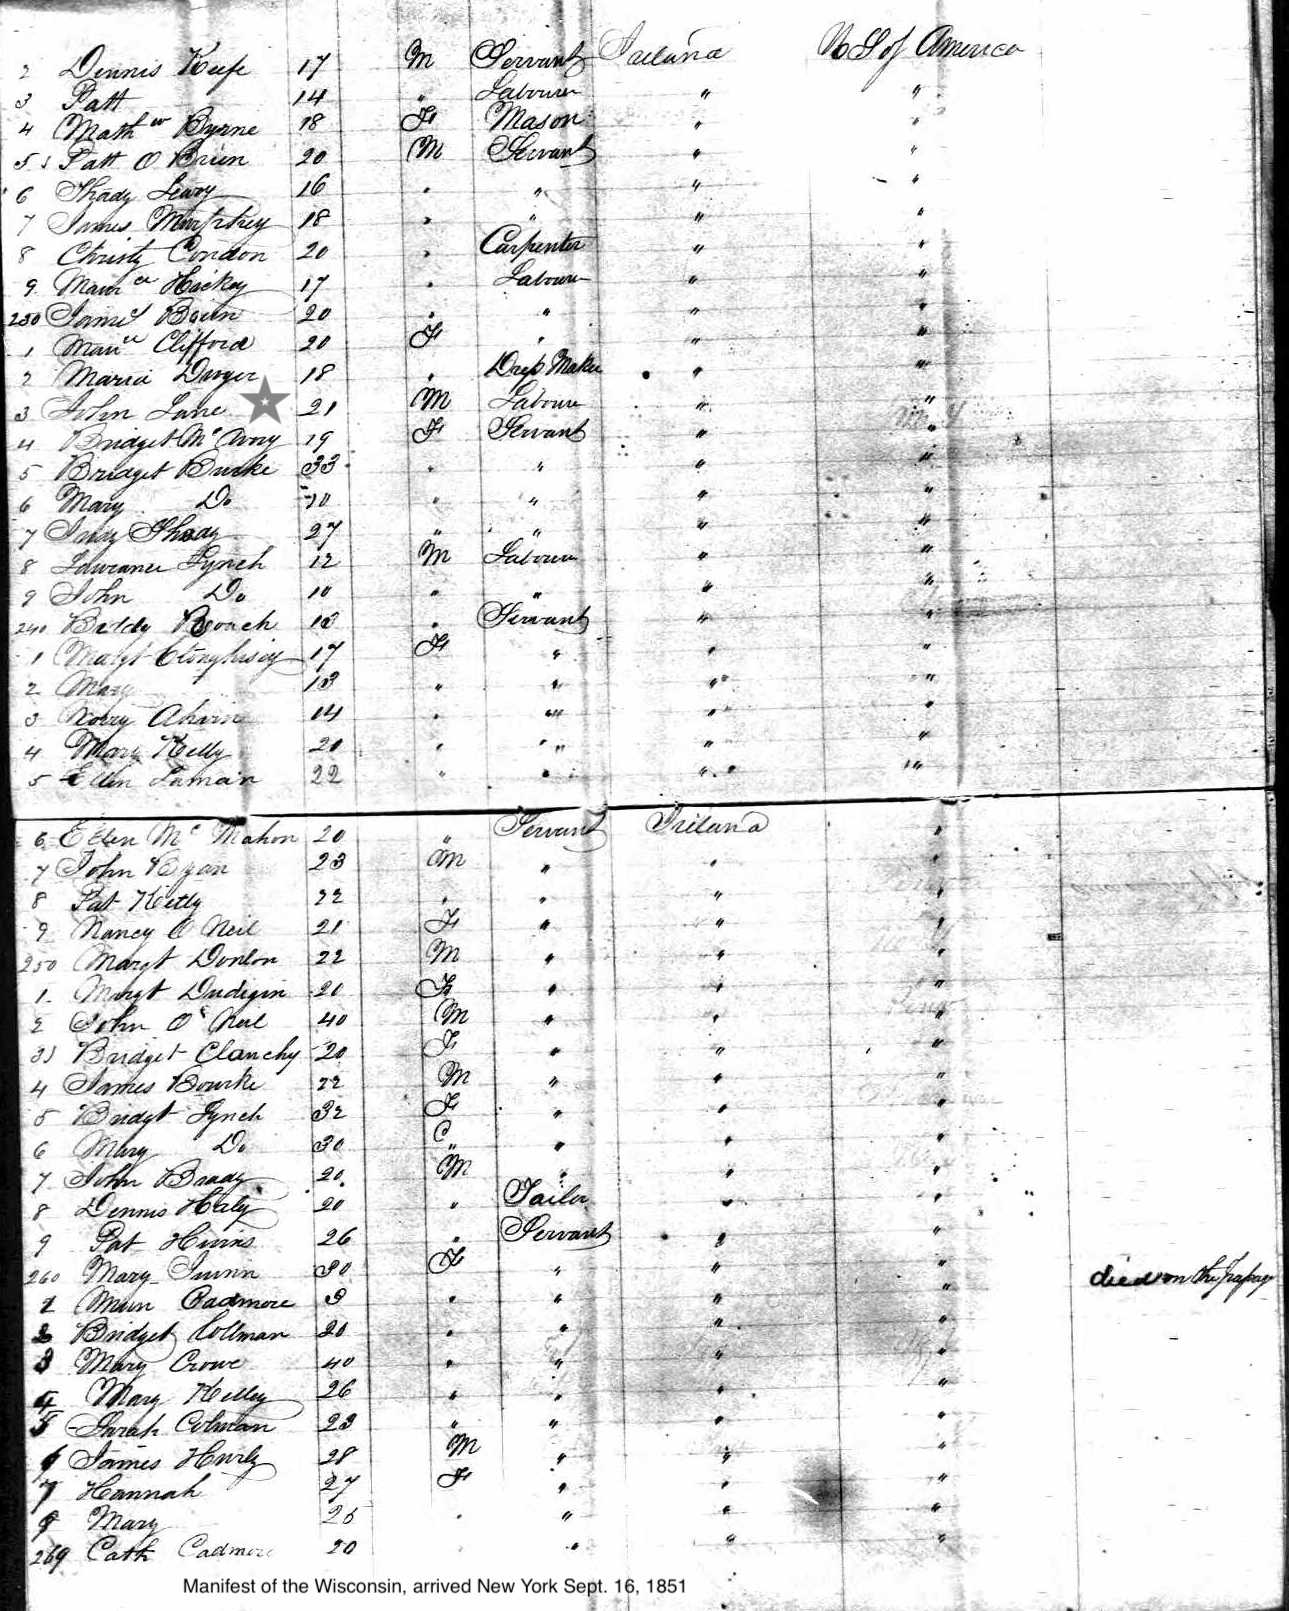 2 Dennis Keefe 17 M Servant Ireland U S of America
3 Patt 14 " Labourer " "
4 Mathw Byrne 18 F Mason " "
5 Patt O Brien 20 M Servant " "
6 Thady 16 " " " "
7 James Murphey 18 " " " "
8 Christy Condon 20 " Carpenter " "
9 Maurce Hickey 17 " Labourer " "
230 James 20 " " " "
1 Clifford 20 F " " "
2 Maria Dwyer 18 " Dress Maker " "
3 John Lane 21 M Laboure " "
4 Bridget Mc Avoy 19 F Servant " "
5 Bridget Burke 33 " " " "
6 Mary Do 10 " " " "
7 Thady 27 " " " "
8 Lawrance Lynch 12 M Labourer " "
9 John Do 10 " " " "
240 Biddy Roach 13 " Servant " "
1 Margt 17 F " " "
2 Mary 13 " " " "
3 Norry 14 " " " "
4 Mary Kelly 20 " " " "
5 Ellen 22 " " " "
6 Ellen Mc Mahon 20 " Servant Ireland "
7 John Ryan 23 M " " "
8 Pat Kelly 22 " " " "
9 Nancy O Neil 21 F " " "
250 Margt Donlon 22 M " " "
1 Margt Dudigin 20 F " " "
2 John O'Neil 40 M " " "
3 Bridget Clanchy 20 F " " "
4 James Bourke 22 M " " "
5 Bridgt Lynch 32 F " " "
6 Mary Do 30 " " " "
7 John Brady 20 M " " "
8 Dennis Haly 20 " Tailor " "
9 Pat 26 " Servant " "
260 Mary 30 F " " " died on the Passage
1 Cadmore 9 " " " "
2 Bridget Collman 20 " " " "
3 Mary Crowe 40 " " " "
4 Mary Kelley 26 " " " "
5 Sarah Colman 23 " " " "
6 James Hurly 28 M " " "
7 Hannah 27 F " " "
8 Mary 25 " " " "
269 Cath Cadmore 20 " " " "
Manifest of the Wisconsin, arrived New York Sept. 16, 1851